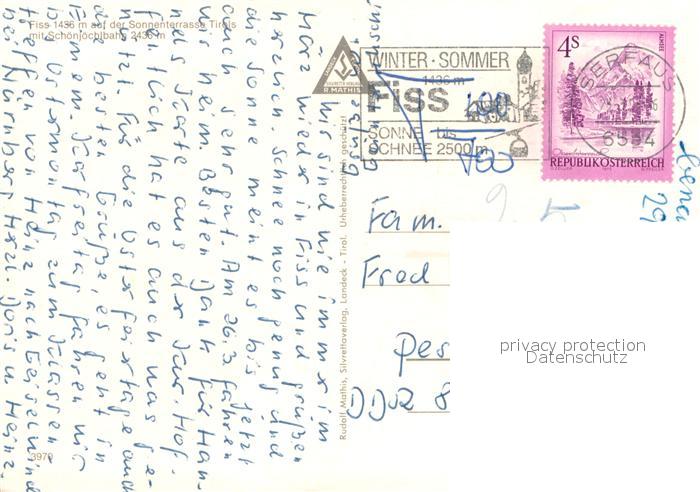 Fiss 1436 m auf der Sonnenterrasse Tirols
mit Schönjöchlbahn 2436 m
Wir sind wie immer im
März wieder in Fiss und grüßen
herzlich. Schnee noch genug und
die Sonne meint es bis jetzt
auch sehr gut. Am 26.3. fahren
wir heim. Besten Dank für Han-
nes Karte aus der Jug. Hof-
fentlich hat es auch was ge-
nützt. Für die Osterfeiertage auch
die besten Grüße, es geht in
Einem. fahren wir
ab Ostermontag zum Klassen-
treffen von Heinz nach
bei Nürnberg. Herzl. Doris u. Heinz.
3979
Rudolf Mathis, Silvrettaverlag, Landeck - Tirol. Urheberrechtlich geschützt!
R. MATHIS
WINTER · SOMMER
1436 m
Fiss
SONNE bis
SCHNEE 2500 m
SERFAUS
6534
4S
ALMSEE
REPUBLIK ÖSTERREICH
100
700
Gena
29
Fam.
Fred
Pes
DDR 8
privacy protection
Datenschutz